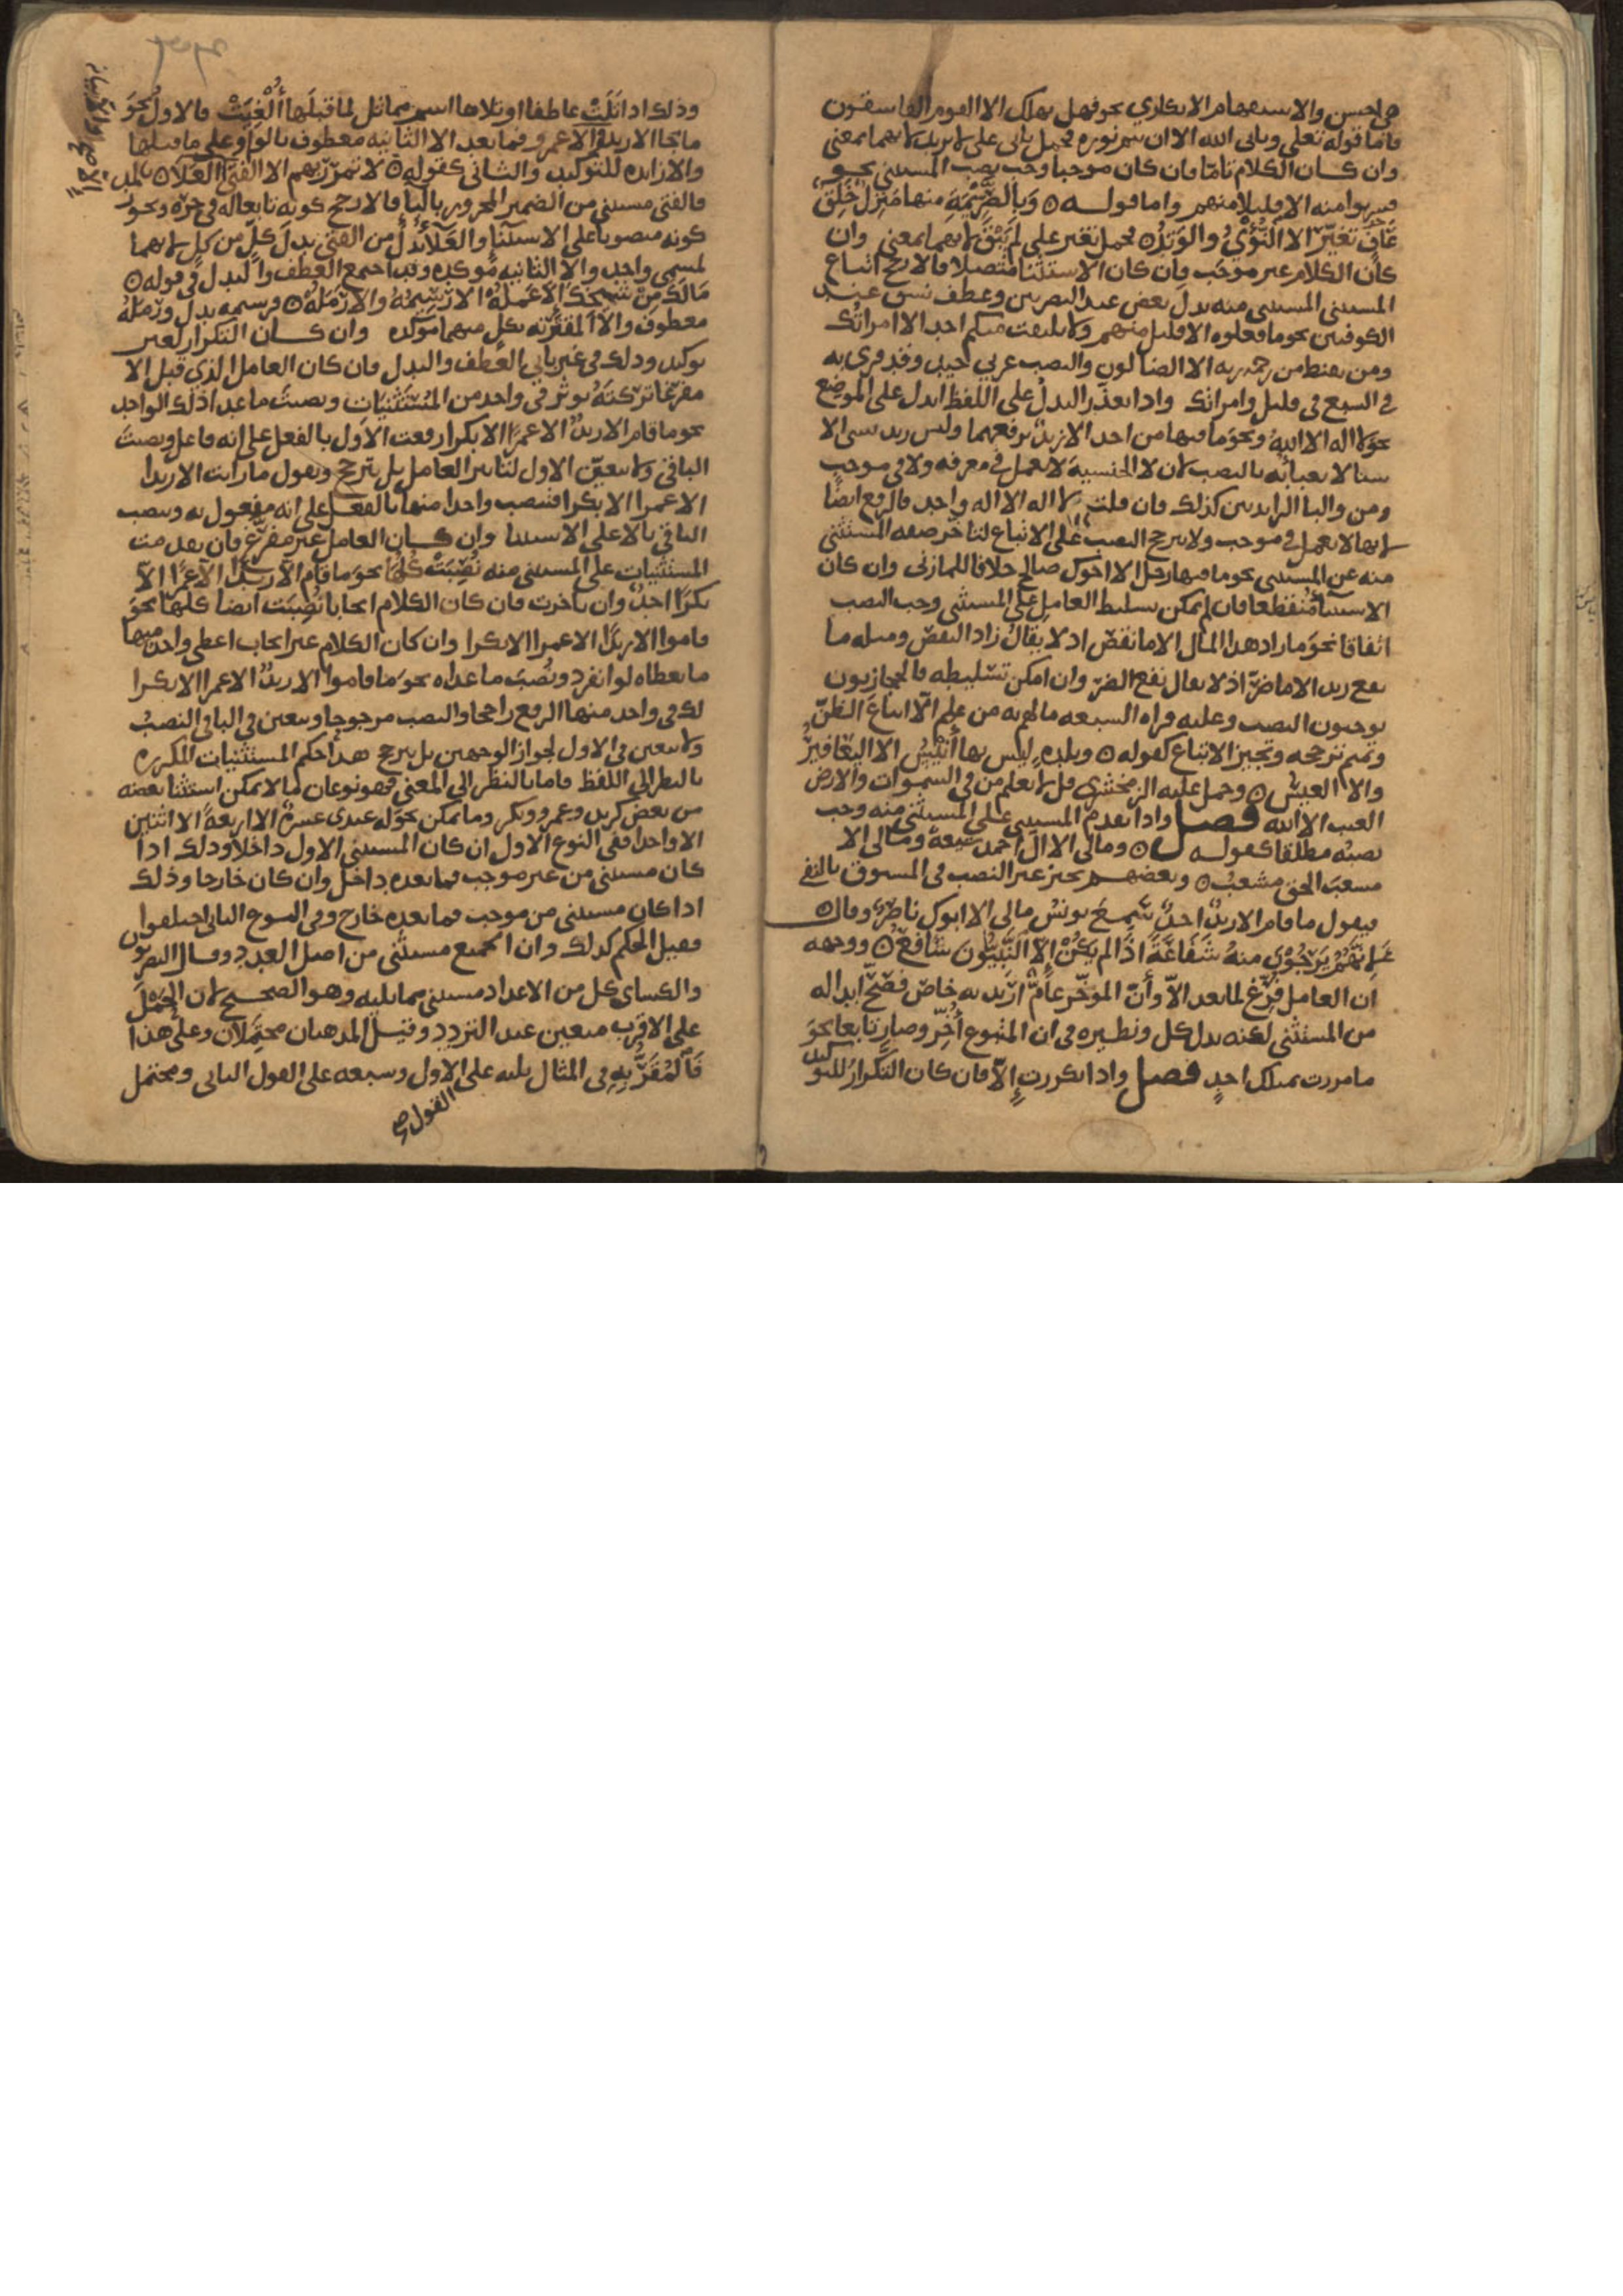 هي احسن والاستفهام الانكاري نحو فهل يهلك الا القوم الفاسقون
فاما قوله تعلى ويابى الله الا ان يتم نوره فحمل يابى على لا يريد لانهما بمعنى
وان كان الكلام تامّا فان كان موجبا وجب نصب المستثنى نحو
فشربوا منه الا قليلا منهم واما قوله ٥ وَبِالصَّرِيْمَةِ منها مَنْزِلٌ خَلِقٌ
عَافٍ تَغَيَّرَ الا النُّؤْيُ والوَتِدُ ٥ فحمل تغير على لم يَبْقَ لانهما بمعنى وان
كان الكلام غير موجب فان كان الاستثنا متصلا فالارجح اتباع
المستثنى المستثنى منه بدل بعض عند البصريين وعطف نسق عند
الكوفيين نحو ما فعلوه الا قليل منهم ولا يلتفت منكم احد الا امراتك
ومن يقنط من رحمه ربه الا الضالون والنصب عربي جيد وقد قرى به
في السبع في قليل وامراتك واذا تعذر البدل على اللفظ ابدل على الموضع
نحو لا اله الا الله ونحو ما فيها من احد الا زيدٌ برفعهما وليس زيد بشى الا
شيئا لا يعبا به بالنصب لان لا الجنسية لا تعمل في معرفه ولا في موجب
ومن والبا الزايدتين كذلك فان قلت لا اله الا اله واحد فالرفع ايضا
لانها لا تعمل في موجب ولا يترجح النصب على الاتباع لتاخر صفه المستثنى
منه عن المستثنى نحو ما فيها رجل الا اخوك صالح خلافا للمازني وان كان
الاستثنا مُنقطعا فان لم يمكن تسليط العامل على المستثنى وجب النصب
اتفاقا نحو ما زاد هذا المال الا ما نقص اذ لا يقالُ زاد النقص ومثله ما
نفع زيد الا ما ضرّ اذ لا يقال نفع الضرّ وان امكن تسليطه فالحجازيون
يوجبون النصب وعليه قراه السبعه ما لهم به من علم الّا اتباعَ الظنّ
وتميم ترجحه وتجيز الاتباع كقوله ٥ وبلدةٍ ليس بها أَنِيْسُ الا اليَعَافِيْرُ
والا العيسُ ٥ وحمل عليه الزمخشري قل لا يعلم من في السموات والارض
الغيب الا الله فصل واذا تقدم المستثنى على المستثنى منه وجب
نصبُه مطلقا كقوله ٥ ومالى الا ال احمد شيعةٌ ومالى الا
مشعبَ الحق مشعبُ ٥ وبعضهم يجيز غير النصب في المسبوق بالنفي
فيقول ما قام الا زيدٌ احدٌ سَمِعَ يونس مالى الا ابوك ناصرٌ وقال ٥
لِانَّهُمْ يَرْجُوْنَ منهُ شَفَاعَةً اذا لم يَكُنْ إلّا النَّبِيُّونَ شافعُ ٥ ووجهه
ان العامل فُرِّغ لما بعد الّا وأنّ المؤخّر عامٌّ اُرِيْد به خاصّ فصَحَّ ابداله
من المستثنى لكنه بدل كل ونظيره في ان المتبوع أُخِّر وصار تابعا نحو
ما مررت بمثلك احدٍ فصل واذا تكررت إلّا فان كان التكرارُ للتوكيد
وذلك اذا تَلَتْ عاطفا او تلاها اسم مماثل لما قبلَها أُلْغِيَتْ فالاول نحو
ما جا الا زيد والا عمرو فما بعد الا الثانيه معطوف بالواو على ما قبلها
والا زايده للتوكيد والثانى كقوله ٥ لا تمرُرْ بهم الا الفتى الا العلا ٥
فالفتى مستثنى من الضمير المجرور بالبآ فالارجح كونه تابعا له في جرّه ويجوز
كونه منصوبا على الاستثنا والعَلآءُ بدلٌ من الفتى بدلَ كلٍّ من كل لانهما
لمسمى واحد والا الثانيه مؤكده وقد اجتمع العطف والبدل في قوله ٥
مَالَكَ مِنْ شَيْخِكَ الّا عَمَلُهْ الا رَسِيْمُهُ والا رَمَلُهْ ٥ فرسيمه بدل ورمَلُه
معطوف والّا المقترنه بكل منهما مؤكده وان كان التكرار لغير
توكيد وذلك في غير بابي العطف والبدل فان كان العامل الذى قبل الا
مفرغا تركتَهُ يؤثر في واحد من المُسْتَثْنيَات ونصبتَ ما عدا ذلك الواحد
نحو ما قام الا زيدٌ الا عمرًا الا بكرا رفعت الاول بالفعل على انه فاعل ونصبتَ
الباقى ولا يتعيّن الاول لتاثير العامل بل يترجح وتقول ما رايت الا زيدا
الا عمرا الا بكرا فتنصب واحدا منها بالفعل على انه مفعول به وتنصب
الباقى بالّا على الاستثنا وان كان العامل غير مفرّغ فان تقدمت
المستثنيات على المستثنى منه نُصِبَتْ كُلُّها نحو ما قام الا زيدًا الا عمرًا الّا
بكرًا احدٌ وان تاخرت فان كان الكلام ايجابا نُصِبَت ايضا كلها نحو
قاموا الا زيدًا الا عمرا الا بكرا وان كان الكلام غير ايجاب اعطى واحد منها
ما يعطاه لو انفرد ونُصبَ ما عداه نحو ما قاموا الا زيدٌ الا عمرا الا بكرا
لك في واحد منها الرفع راجحا والنصب مرجوحا ويتعين في الباقى النصبُ
ولا يتعين في الاول لجواز الوجهين بل يترجح هذا حكم المستثنيات المكرره
بالنظر الى اللفظ فاما بالنظر الى المعنى فهو نوعان ما لا يمكن استثنا بعضه
من بعض كزيد وعمرو وبكر وما يمكن نحو له عندى عشرةٌ الا اربعةً الا اثنين
الا واحدا ففى النوع الاول ان كان المستثنى الاول داخلا وذلك اذا
كان مستثنى من غير موجب فما بعده داخل وان كان خارجا وذلك
اذا كان مستثنى من موجب فما بعده خارج وفى النوع الثانى اختلفوا
فقيل الحكم كذلك وان الجميع مستثنى من اصل العدد وقال البصريون
والكساى كل من الاعداد مستثنى مما يليه وهو الصحيح لان الحَمْلَ
على الاقرب متعين عند التردد وقيل المذهبان محتمِلان وعلى هذا
فَالْمُقَرُّ بِهِ فى المثال ثلثه على الاول وسبعه على القول الثانى ومحتمل
القول